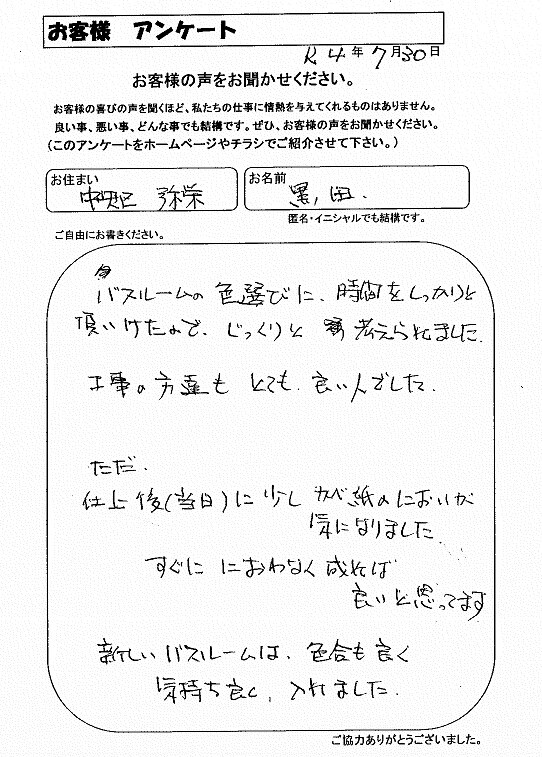 お客様 アンケート
R4年7月30日
お客様の声をお聞かせください。
お客様の喜びの声を聞くほど、私たちの仕事に情熱を与えてくれるものはありません。
良い事、悪い事、どんな事でも結構です。ぜひ、お客様の声をお聞かせください。
(このアンケートをホームページやチラシでご紹介させて下さい。)
お住まい
中央区 弥栄
お名前
黒田.
匿名・イニシャルでも結構です。
ご自由にお書きください。
バスルームの色選びに、時間をしっかりと
頂いけたので、じっくりと 考えられました.
工事の方達も とても 良い人でした.
ただ.
仕上後(当日)に少し カベ紙のにおいが
気になりました.
すぐに におわなく成れば
良いと思ってます
新しいバスルームは、色合も良く
気持ち良く、入れました.
ご協力ありがとうございました。